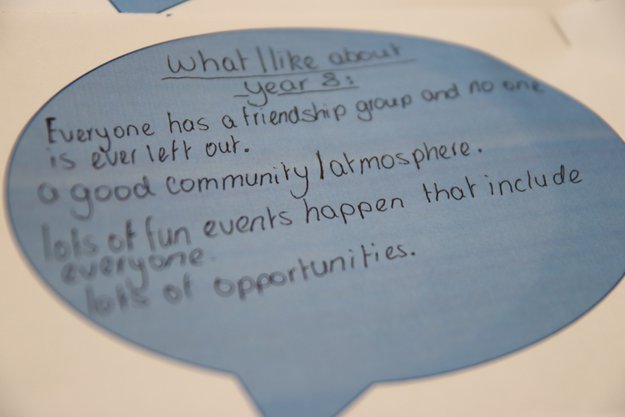 What I like about
year 8:
Everyone has a friendship group and no one
is ever left out.
a good community/atmosphere.
lots of fun events happen that include
everyone.
lots of opportunities.